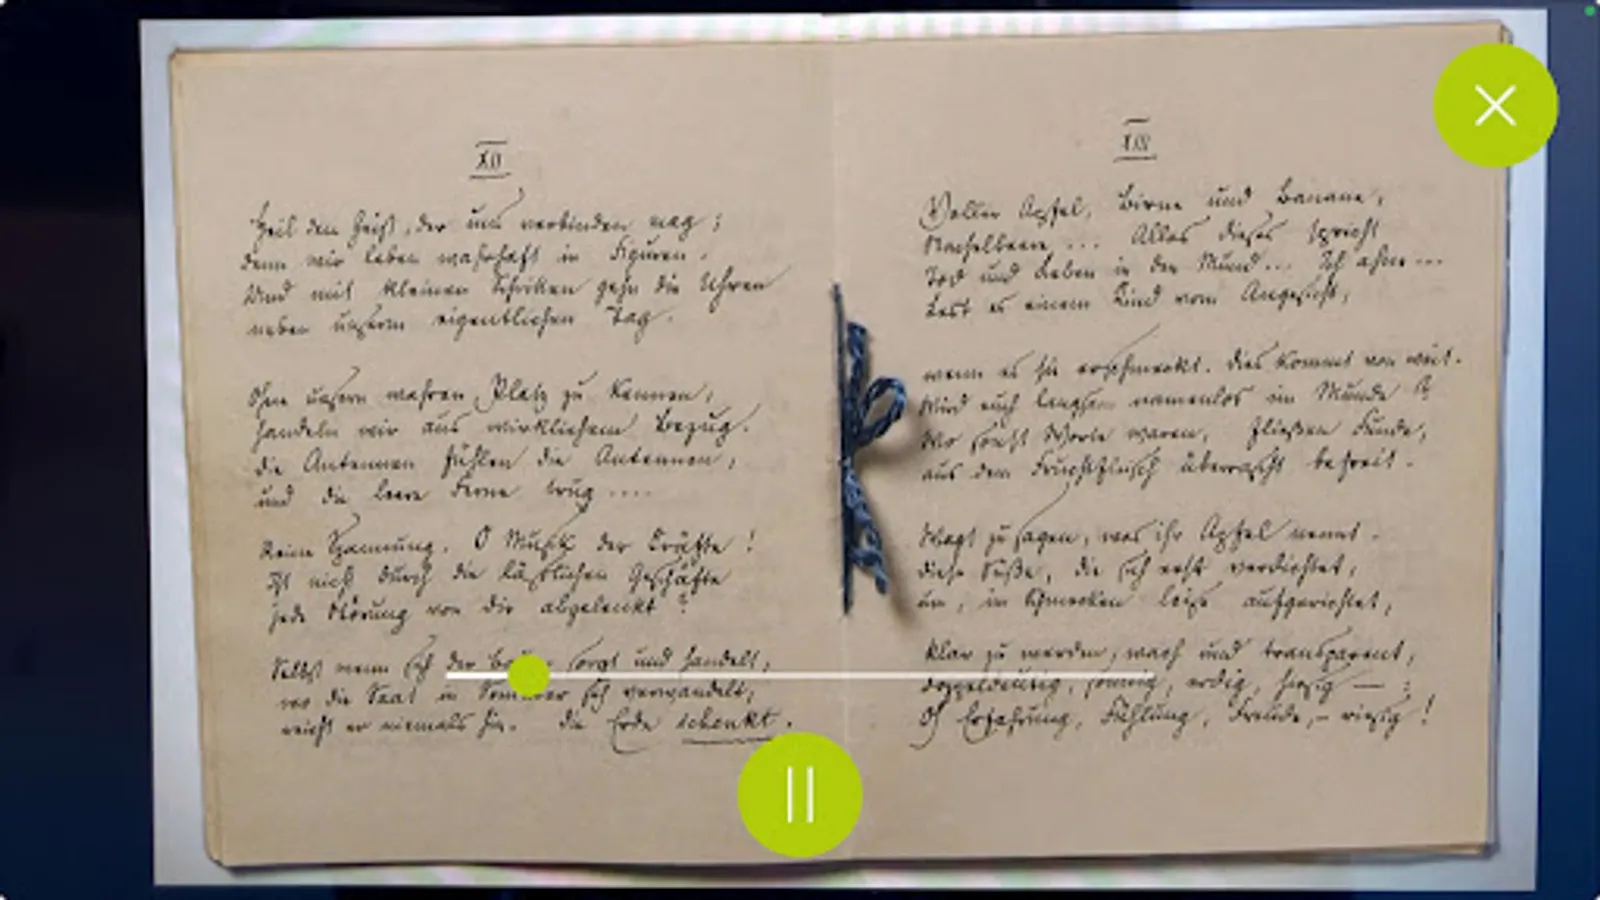 XII
Heil dem Geist, der uns verbinden mag;
denn wir leben wahrhaft in Figuren.
Und mit kleinen Schritten gehn die Uhren
neben unserm eigentlichen Tag.
Ohne unsern wahren Platz zu kennen,
handeln wir aus wirklichem Bezug.
die Antennen fühlen die Antennen,
und die leere Ferne trug ....
Reine Spannung. O Musik der Kräfte!
Ist nicht durch die läßlichen Geschäfte
jede Störung von dir abgelenkt?
Selbst wenn sich der Bauer sorgt und handelt,
wo die Saat in Sommer sich verwandelt,
reicht er niemals hin. die Erde schenkt.
XIII
Voller Apfel, Birne und Banane,
Stachelbeere ... Alles dieses spricht
Tod und Leben in den Mund... Ich ahne...
Lest es einem Kind vom Angesicht,
wenn es sie erschmeckt. Dies kommt von weit.
Wird euch langsam namenlos im Munde?
Wo sonst Worte waren, fließen Funde,
aus dem Fruchtfleisch überrascht befreit.
Wagt zu sagen, was ihr Apfel nennt.
diese Süße, die sich erst verdichtet,
um, im Schmecken leise aufgerichtet,
klar zu werden, wach und transparent,
doppeldeutig, sonnig, erdig, hiesig —:
O Erfahrung, Fühlung, Freude,– riesig!